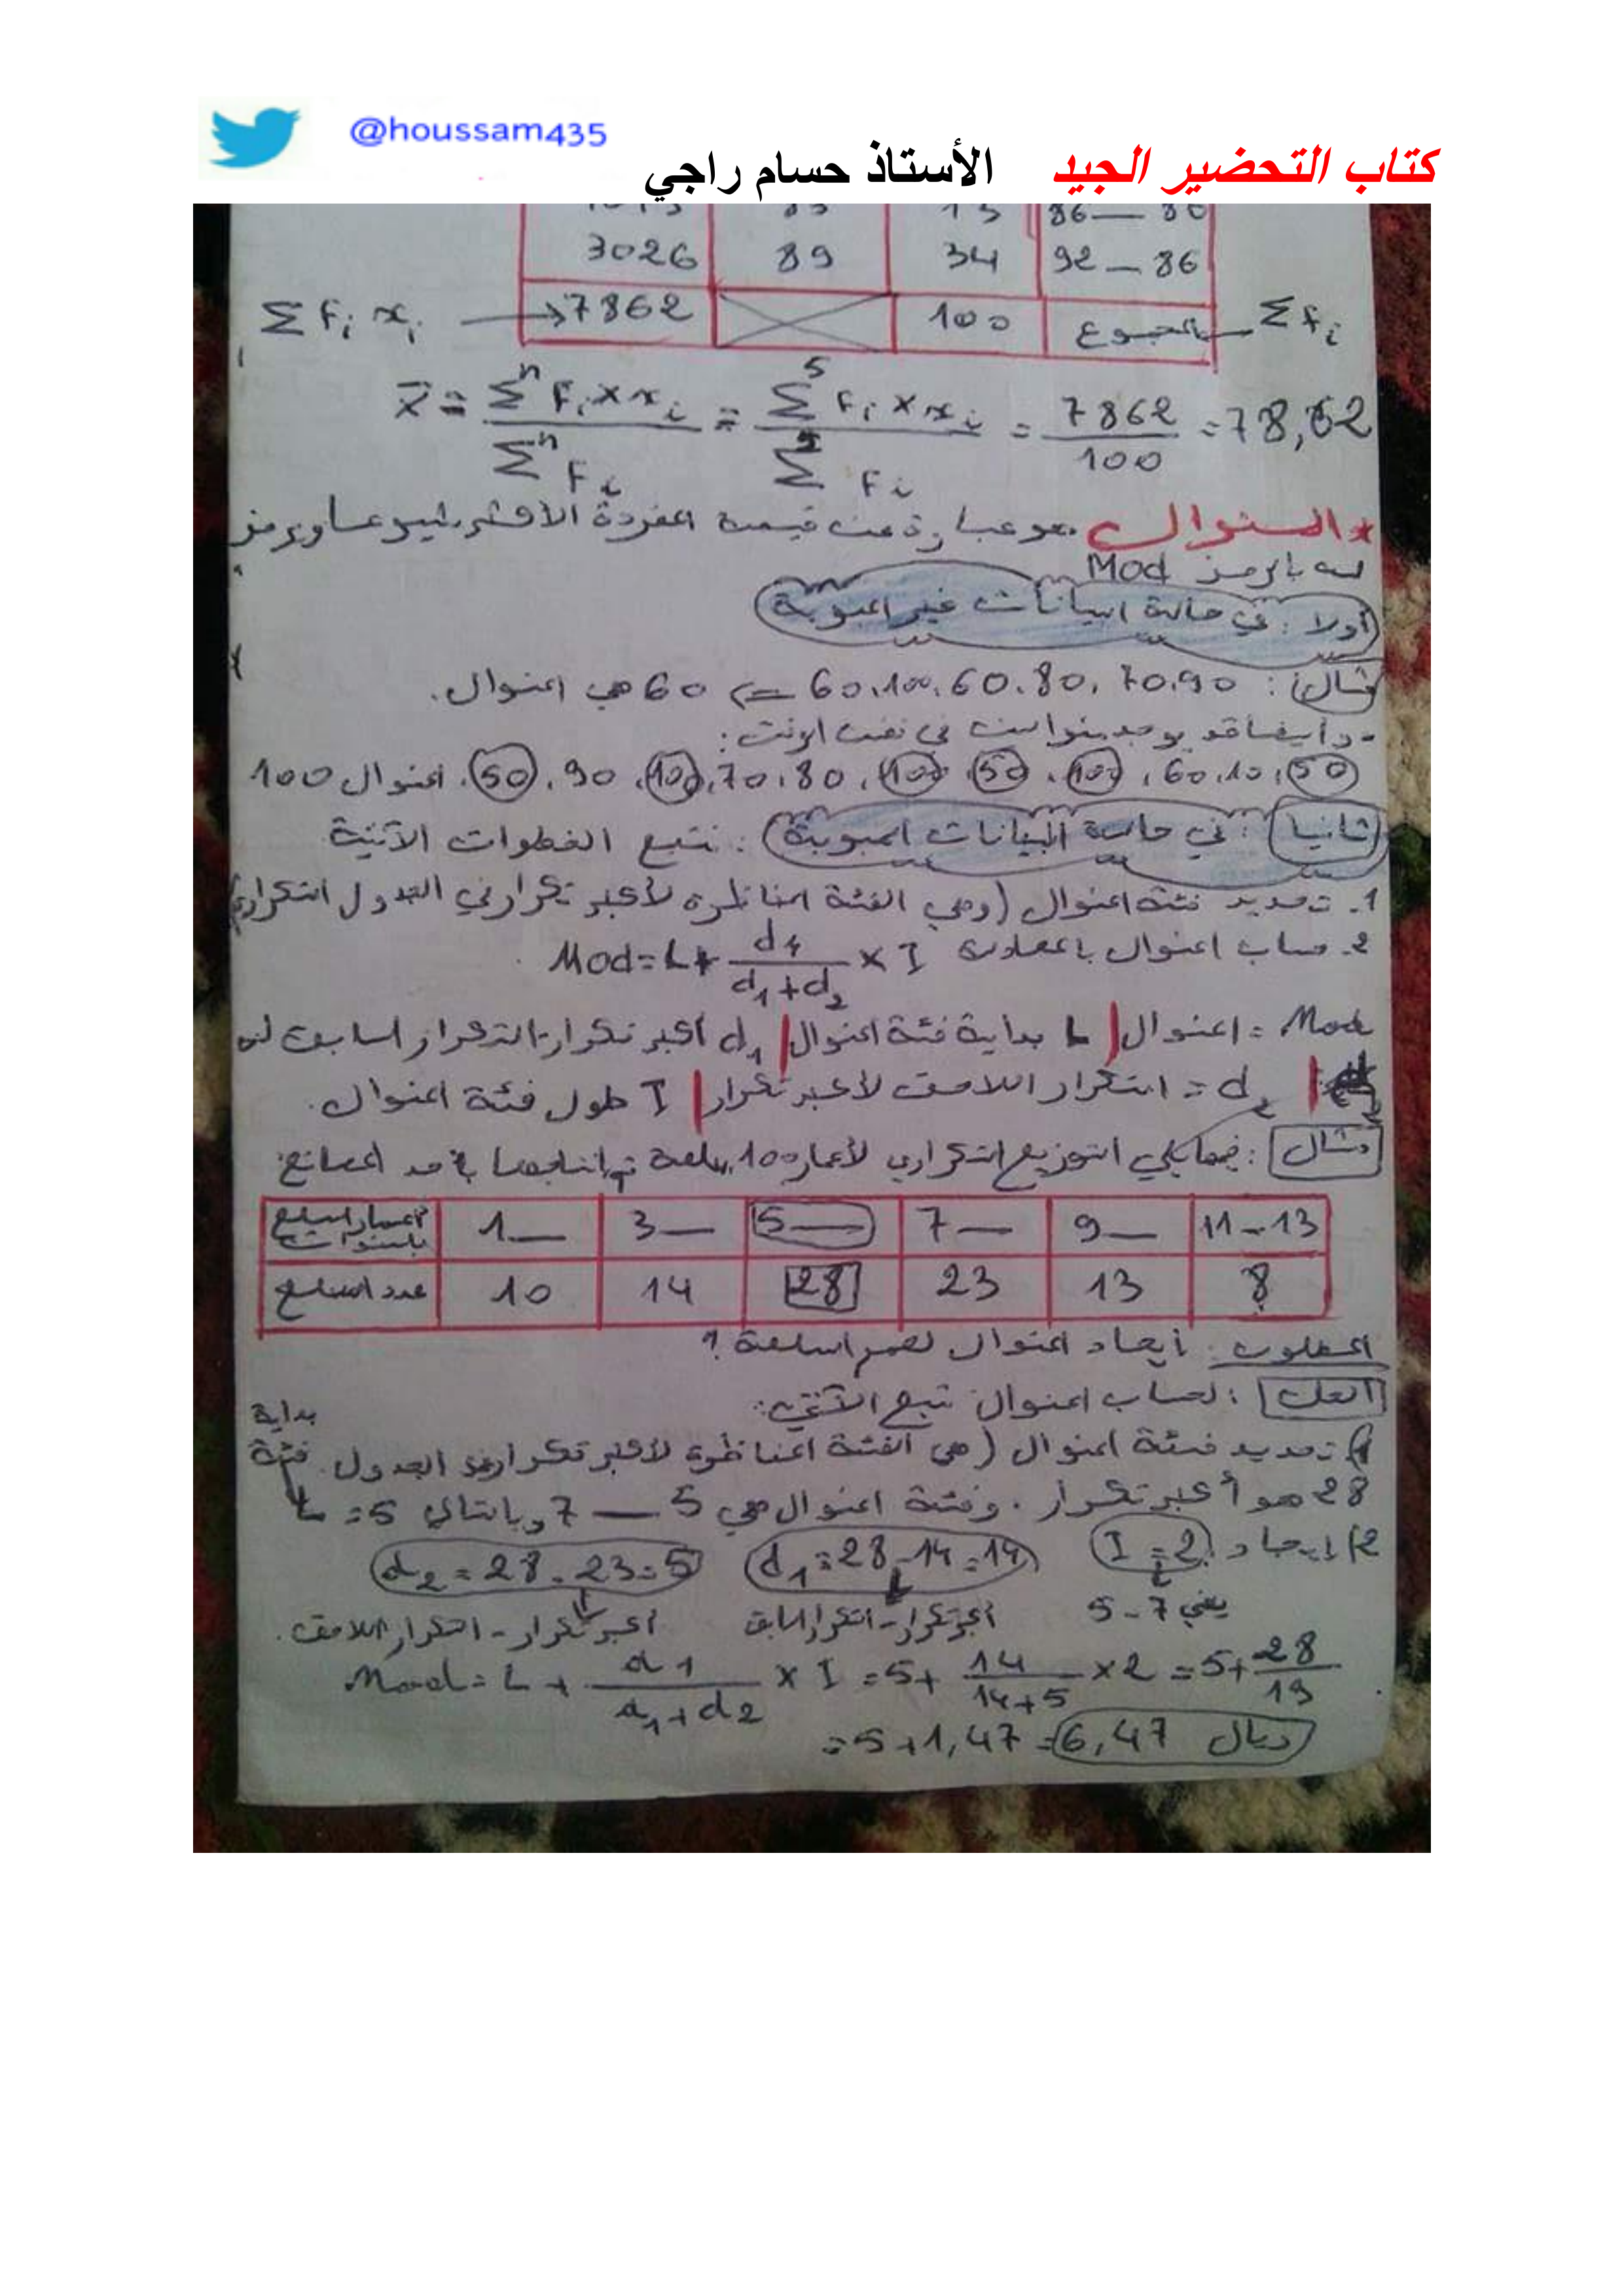 @houssam435
كتاب التحضير الجيد الأستاذ حسام راجي
86 — 80
92 — 86 34 89 3026
Σ Fi xi → 7862 100 المجموع Σ Fi
x̄ = Σⁿ Fi × xi / Σⁿ Fi = Σ⁵ Fi × xi / Σ⁵ Fi = 7862 / 100 = 78,62
* المنوال هو عبارة عن قيمة المفردة الأكثر شيوعا ويرمز
له بالرمز Mod
أولا : في حالة البيانات غير المبوبة
مثال : 60.100.60.80.70.90 => 60 هي المنوال.
- وأيضا قد يوجد منوالين في نفس الوقت :
50 .10.60 . 100 . 50 . 100 . 80.70. 100 . 90 . 50 . المنوال 100
ثانيا : في حالة البيانات المبوبة : نتبع الخطوات الآتية
1. تحديد فئة المنوال (وهي الفئة المناظرة لأكبر تكرار في الجدول التكراري)
2. حساب المنوال بالمعادلة Mod = L + d1 / d1 + d2 × I
Mod = المنوال | L بداية فئة المنوال | d1 أكبر تكرار - التكرار السابق له
| d2 = التكرار اللاحق لأكبر تكرار | I طول فئة المنوال.
مثال : فيما يلي التوزيع التكراري لأعمار 100 سلعة تم إنتاجها بأحد المصانع:
أعمار السلع بالسنوات 1— 3— 5— 7— 9— 11—13
عدد السلع 10 14 28 23 13 8
المطلوب : إيجاد المنوال لعمر السلعة ؟
الحل : لحساب المنوال نتبع الآتي:
1) تحديد فئة المنوال (هي الفئة المناظرة لأكبر تكرار في الجدول. بداية فئة
28 هو أكبر تكرار . وفئة المنوال هي 5 — 7 وبالتالي L = 5
2) إيجاد : I = 2 d1 = 28 - 14 = 14 d2 = 28 - 23 = 5
يعني 7 - 5 أكبر تكرار - التكرار السابق أكبر تكرار - التكرار اللاحق.
Mod = L + d1 / d1 + d2 × I = 5 + 14 / 14 + 5 × 2 = 5 + 28 / 19
= 5 + 1,47 = 6,47 ريال